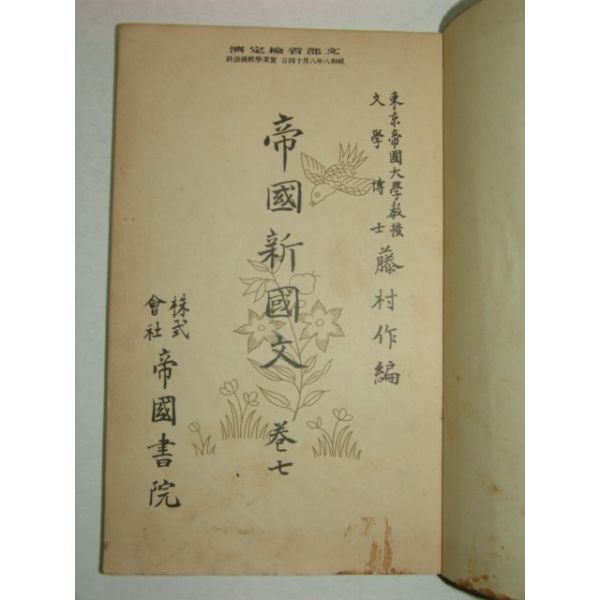 文部省檢定濟
昭和八年八月十四日 實業學校國語科
東京帝國大學教授
文學博士
藤村作編
帝國新國文 卷七
株式
會社
帝國書院